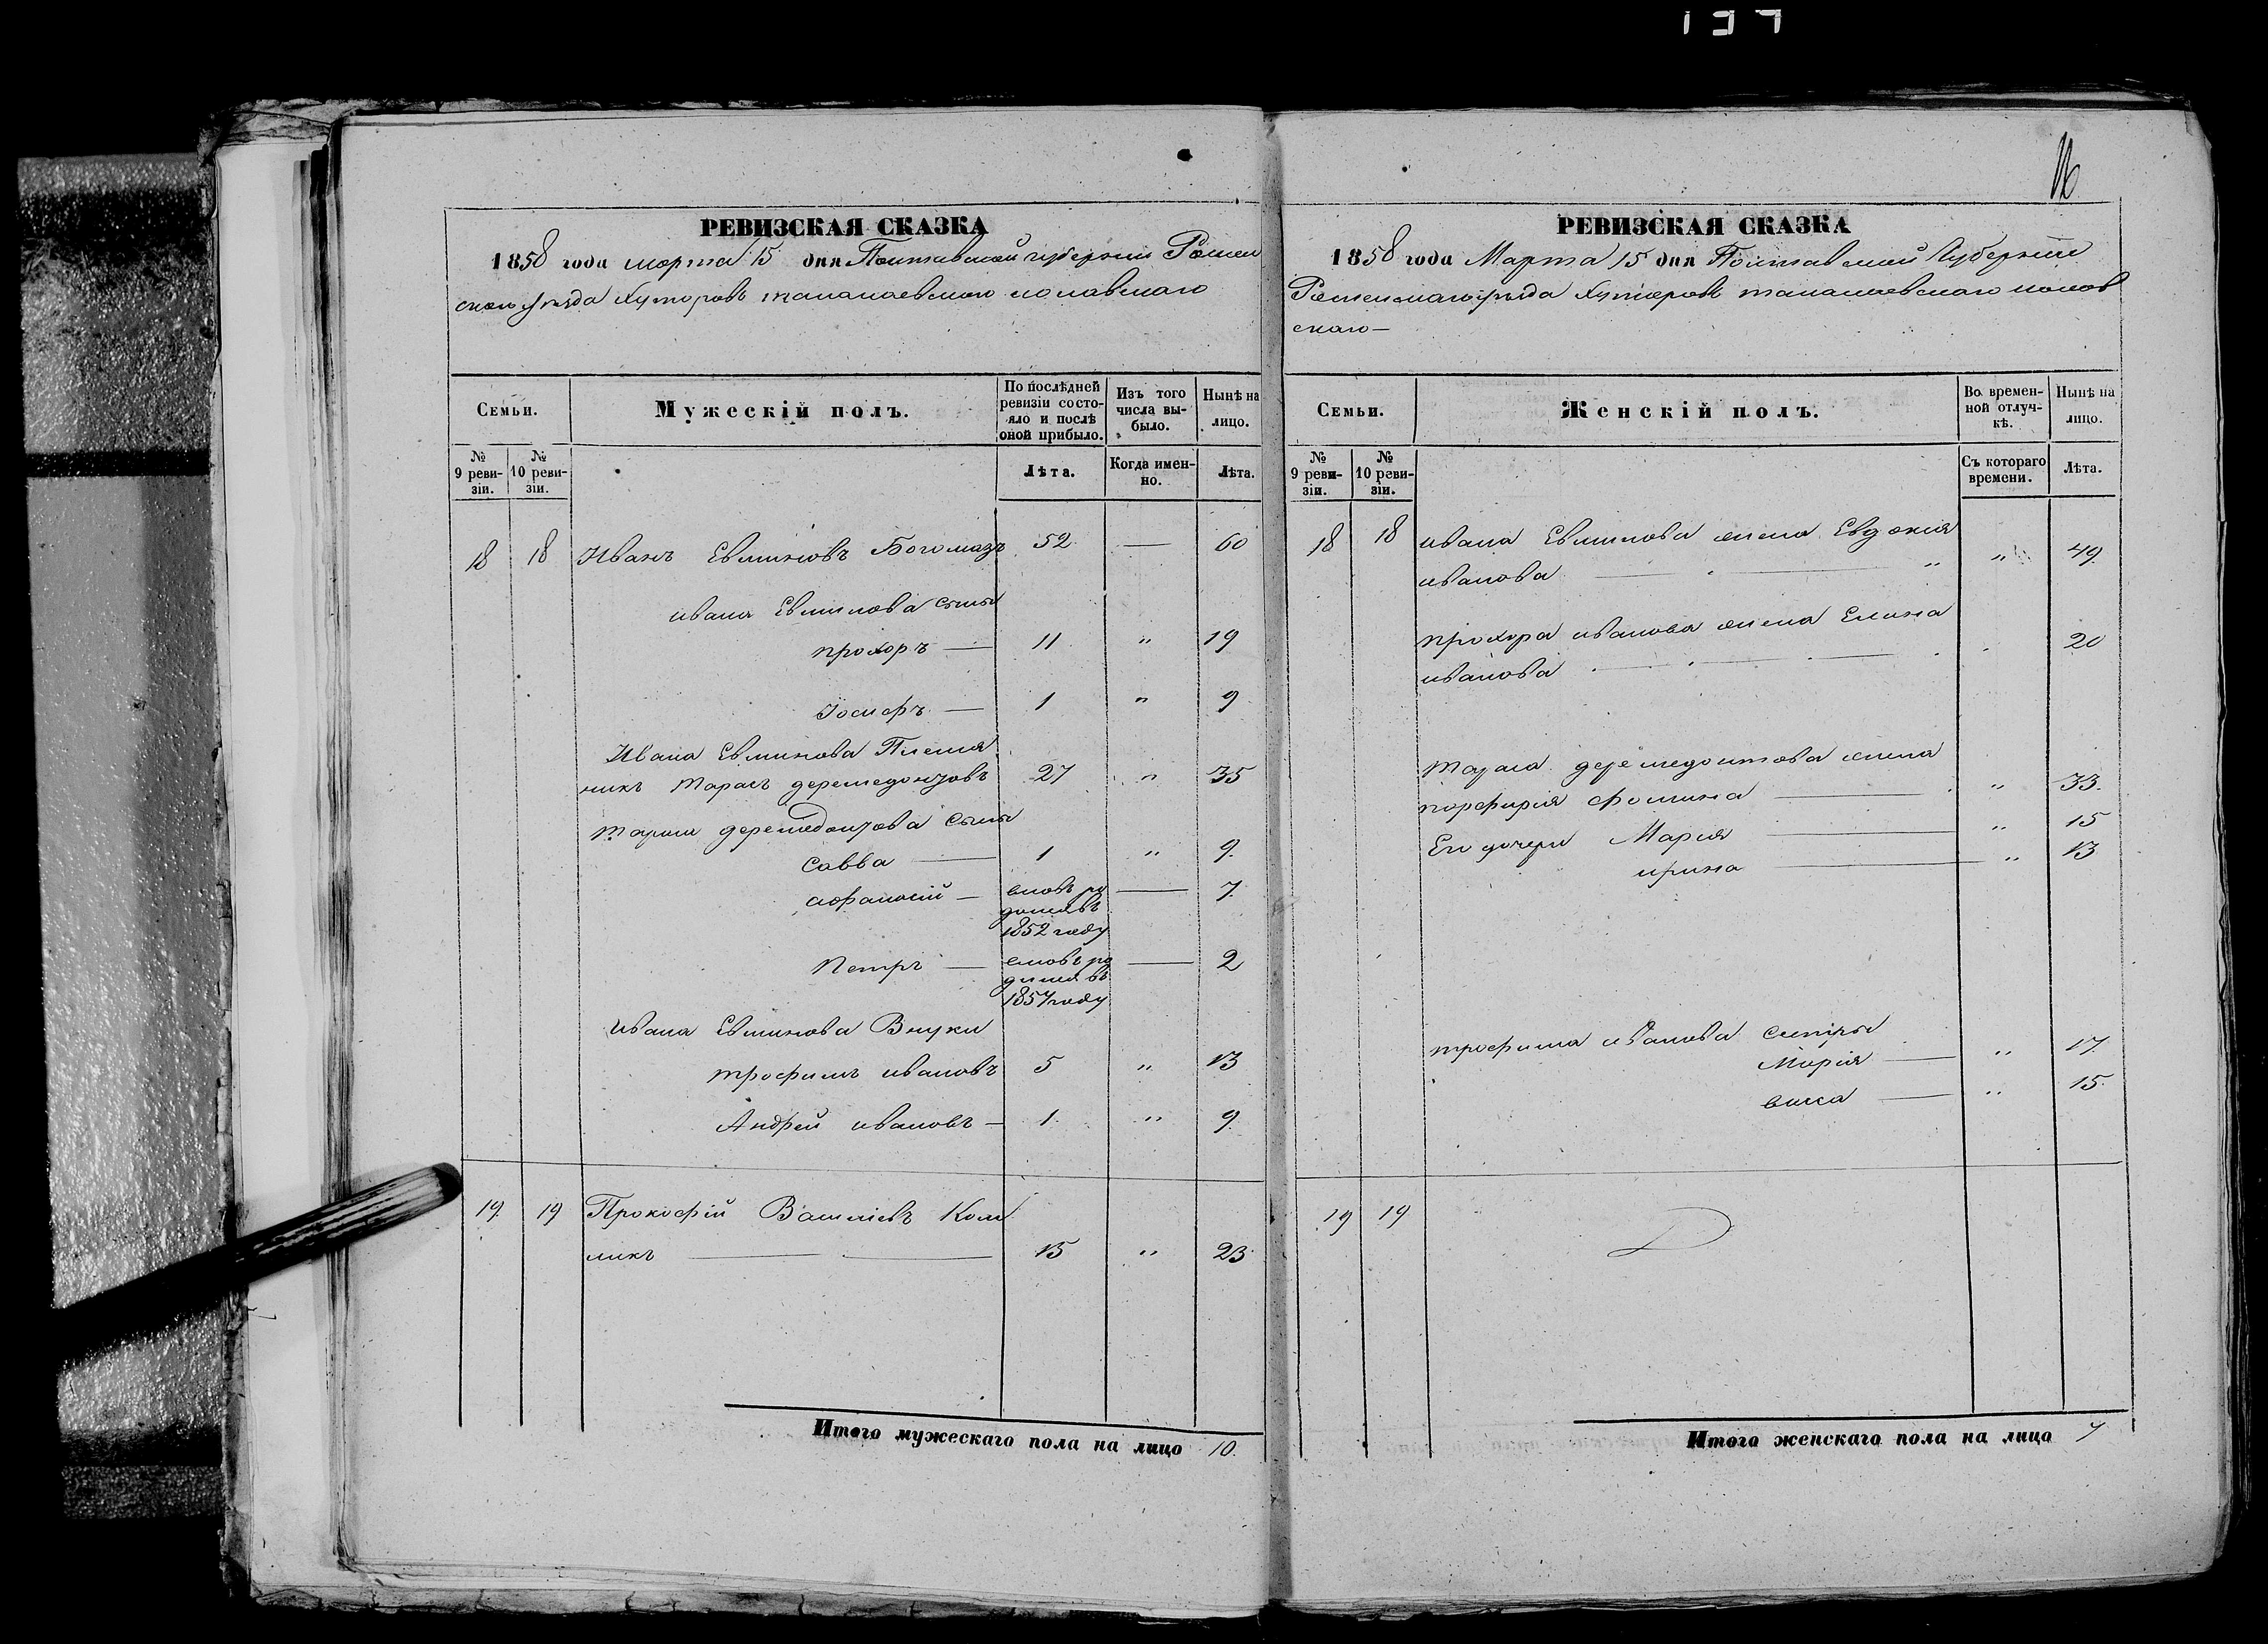 137
16
РЕВИЗСКАЯ СКАЗКА
1858 года марта 15 дня Полтавской губернии Ромен
скаго уезда Хуторовъ
РЕВИЗСКАЯ СКАЗКА
1858 года Марта 15 дня Полтавской Губернiи
Роменскаго уезда Хуторовъ
скаго —
Семьи.
Мужескій полъ.
По послѣдней ревизіи состояло и послѣ оной прибыло.
Изъ того числа выбыло.
Нынѣ на лицо.
№ 9 ревизіи.
№ 10 ревизіи.
Лѣта.
Когда именно.
Лѣта.
18 18 Иванъ Евминовъ Богомазъ 52 — 60
ивана Евминова сыны
прохоръ — 11 " 19
Іосифъ — 1 " 9
Ивана Евминова Племя
никъ Тарасъ 27 " 35
Тараса сыны
савва — 1 " 9.
афанасій — вновь ро — 7
дился въ
1852 году
Петръ — вновь ро — 2
дился въ
1857 году
ивана Евминова Внуки
трофимъ ивановъ 5 " 13
Андрей ивановъ — 1. " 9.
19. 19 Прокофій Васильевъ Кол
никъ — 15 " 23
Итого мужескаго пола на лицо 10.
Семьи.
Женскій полъ.
Во временной отлучкѣ.
Нынѣ на лицо.
№ 9 ревизіи.
№ 10 ревизіи.
Съ котораго времени.
Лѣта.
18 18 ивана Евминова жена Евдокия
иванова — " " 49.
прохора иванова жена Елена
иванова — 20
Тараса жена
порфирия фомина — " 33.
Его дочери Мария — " 15
ирина — " 13
трофима иванова сестры
Марія — " 17.
васса — " 15.
19 19
Итого женскаго пола на лицо 7